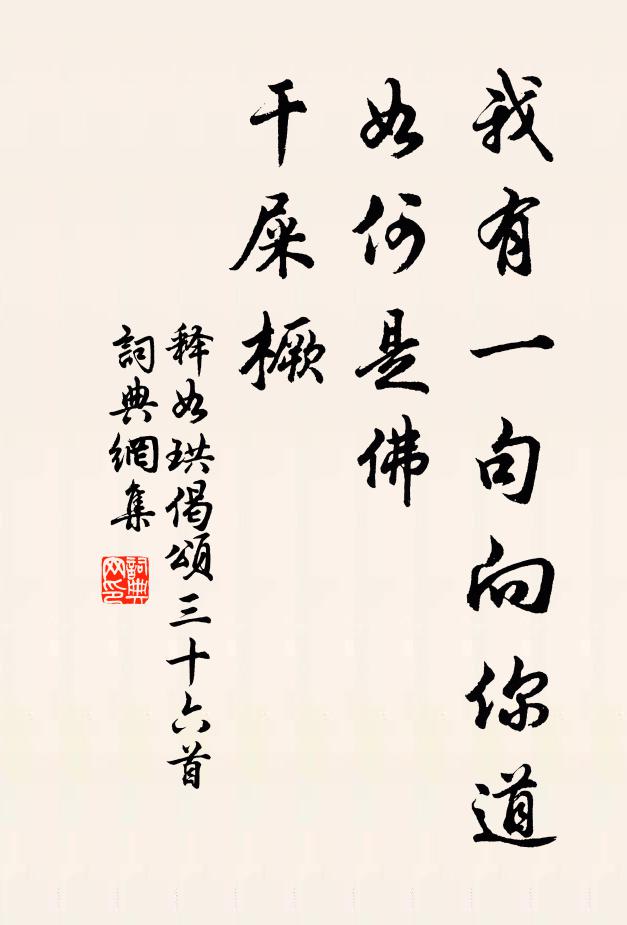 我有一句向你道
如何是佛
干屎橛
释如珙偈頌三十六首
詞典網集
詞典网印